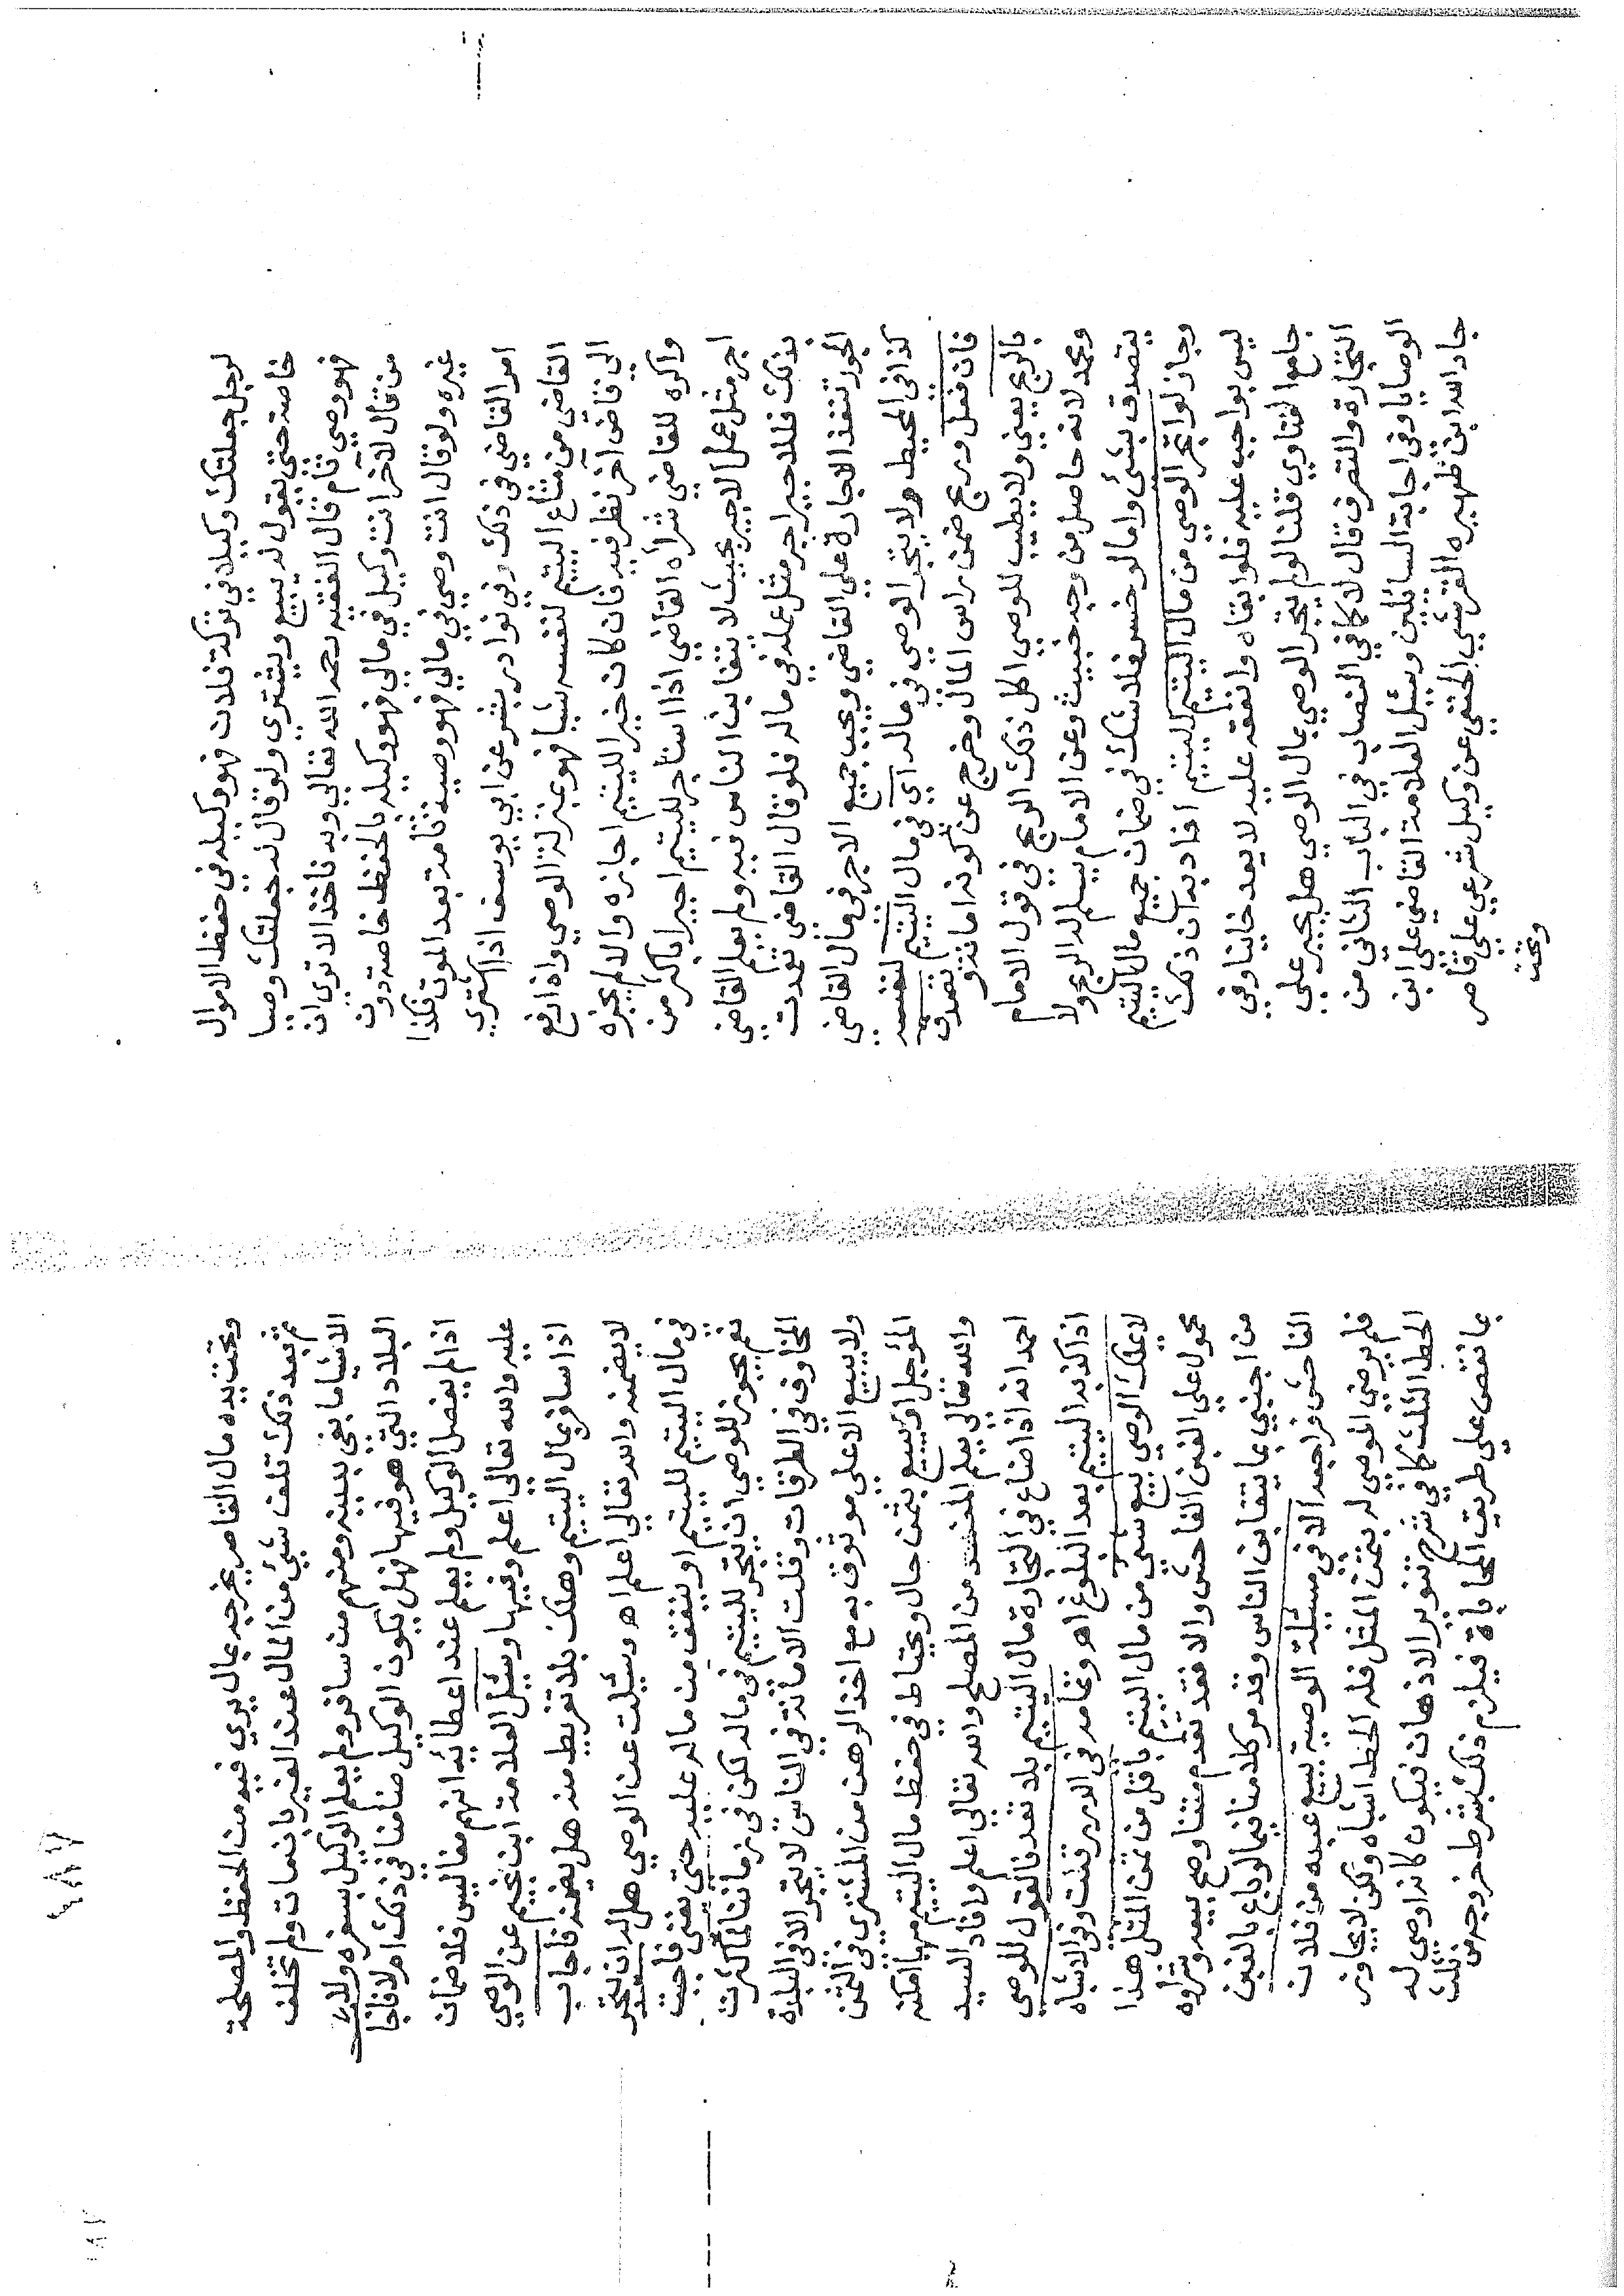 لرجل جعلتك وكيلا في تركة فلان فهو وكيله في حفظ الاموال
خاصة حتي يقول له يبيع ويشتري ولو قال له جعلتك وصيا
فهو وصي تام قال الفقيه رحمه الله تعالي وبه ناخذ الا تري ان
من قال لاخر انت وكيل في مالي فهو وكيله بالحفظ خاصة دون
غيره ولو قال انت وصي في مالي فهو وصية تامة بعد الموت فكذا
امر القاضي في ذلك وفي نوادر بشر عن ابي يوسف اذا اشتري
القاضي من متاع اليتيم لنفسه شيا فهو بمنزلة الوصي واذا رفع
الي قاض آخر نظر فيه فان كان خير اليتيم اجازه والا لم يجزه
واكره للقاضي شرآه القاضي اذا استاجر لليتيم اجيرا باكثر من
اجر مثل عمل الاجير بحيث لا يتغابن الناس فيه ولم يعلم القاضي
بذلك فللاجير اجر مثل عمله في ماله فلو قال القاضي تعمدت
الجور تنفذ الاجارة علي القاضي ويجب جميع الاجر في مال القاضي
كذا في المحيط ولا يتجر الوصي في ماله اي في مال اليتيم لنفسه
فان فعل وربح ضمن راس المال وخرج عن كونه امانة وتصدق
بالربح يعني ولا يطيب للوصي اكل ذلك الربح في قول الامام
ومحمد لانه حاصل من وجه خبيث وعن الامام يسلم له الربح ولا
يتصدق بشئ واما لو خسر فلا شك في ضمان جميع مال اليتيم
وجاز لو اتجر الوصي من مال اليتيم لليتيم افاد به ان ذلك
ليس بواجب عليه فلو ابقاه وانفقه عليه لا يعد خاينا وفي
جامع الفتاوي قلنا لو لم يتجر الوصي بمال الوصي هل يجبر علي
التجارة والتصرف قال لا كما في النصاب في الباب الثاني من
الوصايا وفي اجابة السائلين وسئل العلامة القاضي علي ابن
جاد الله ابن ظهيره القرشي الحنفي عن وكيل شرعي علي قاصر
وتحت
وتحت يده مال القاصر يخرجه بمال يري فيه من الحفظ والمصلحة
ثم بعد ذلك تلف شئ من المال عند الغير بان مات ولم تخلف
الاشيا ما يفي بدينه ومنهم من سافر ولم يعلم الوكيل بسفره ولا باي
البلاد التي هو فيها فهل يكون الوكيل ضامنا في ذلك ام لا فاجاب
اذا لم يفصل الوكيل ولم يعلم عند اعطائه انهم مفاليس فلا ضمان
عليه والله تعالي اعلم وفيها وسئل العلامة ابن نجيم عن الوصي
اذا سافر بمال اليتيم وهلك بلا تفريط منه هل يضمنه فاجاب
لا يضمنه والله تعالي اعلم اهـ وسئلت عن الوصي هل له ان يتجر
في مال اليتيم لليتيم او ينفق من ماله عليه حتي يفني فاجبت
نعم يجوز للوصي ان يتجر لليتيم في ماله لكن في زماننا لما كثرت
المخاوف في الطرقات وقلت الامانة في الناس لا يتجر الا في البلدة
ولا يبيع الا علي موثوق به مع اخذ الرهن من المشتري في الثمن
المؤجل او يبيع بثمن حال ويحتاط في حفظ مال اليتيم مهما امكنه
والله تعالي يعلم المفسد من المصلح والله تعالي اعلم وافاد السيد
احمد انه اذا ضاع في التجارة مال اليتيم بلا تعد فالقول للوصي
اذا كذبه اليتيم بعد البلوغ اهـ وتمامه في الدرر قلت وفي الاشباه
لا يملك الوصي بيع شئ من مال اليتيم باقل من ثمن المثل هذا
محمول علي الغبن الفاحش والا فقد تقدم متنا وصح بيعه وشراوه
من اجنبي بما يتغابن الناس وقد مر كلامنا فيما لو باع بالغبن
الفاحش فراجعه الا في مسئلة الوصية ببيع عبده من فلان
فلم يرضي الموصي له بثمن المثل فله الحط اشباه ولكن لا يجاوز
الحط الثلث كما في شرح تنوير الاذهان فيكون كانه اوصي له
بما نقص علي طريق المحاباة فيلزم ذلك بشرط خروجه من ثلث